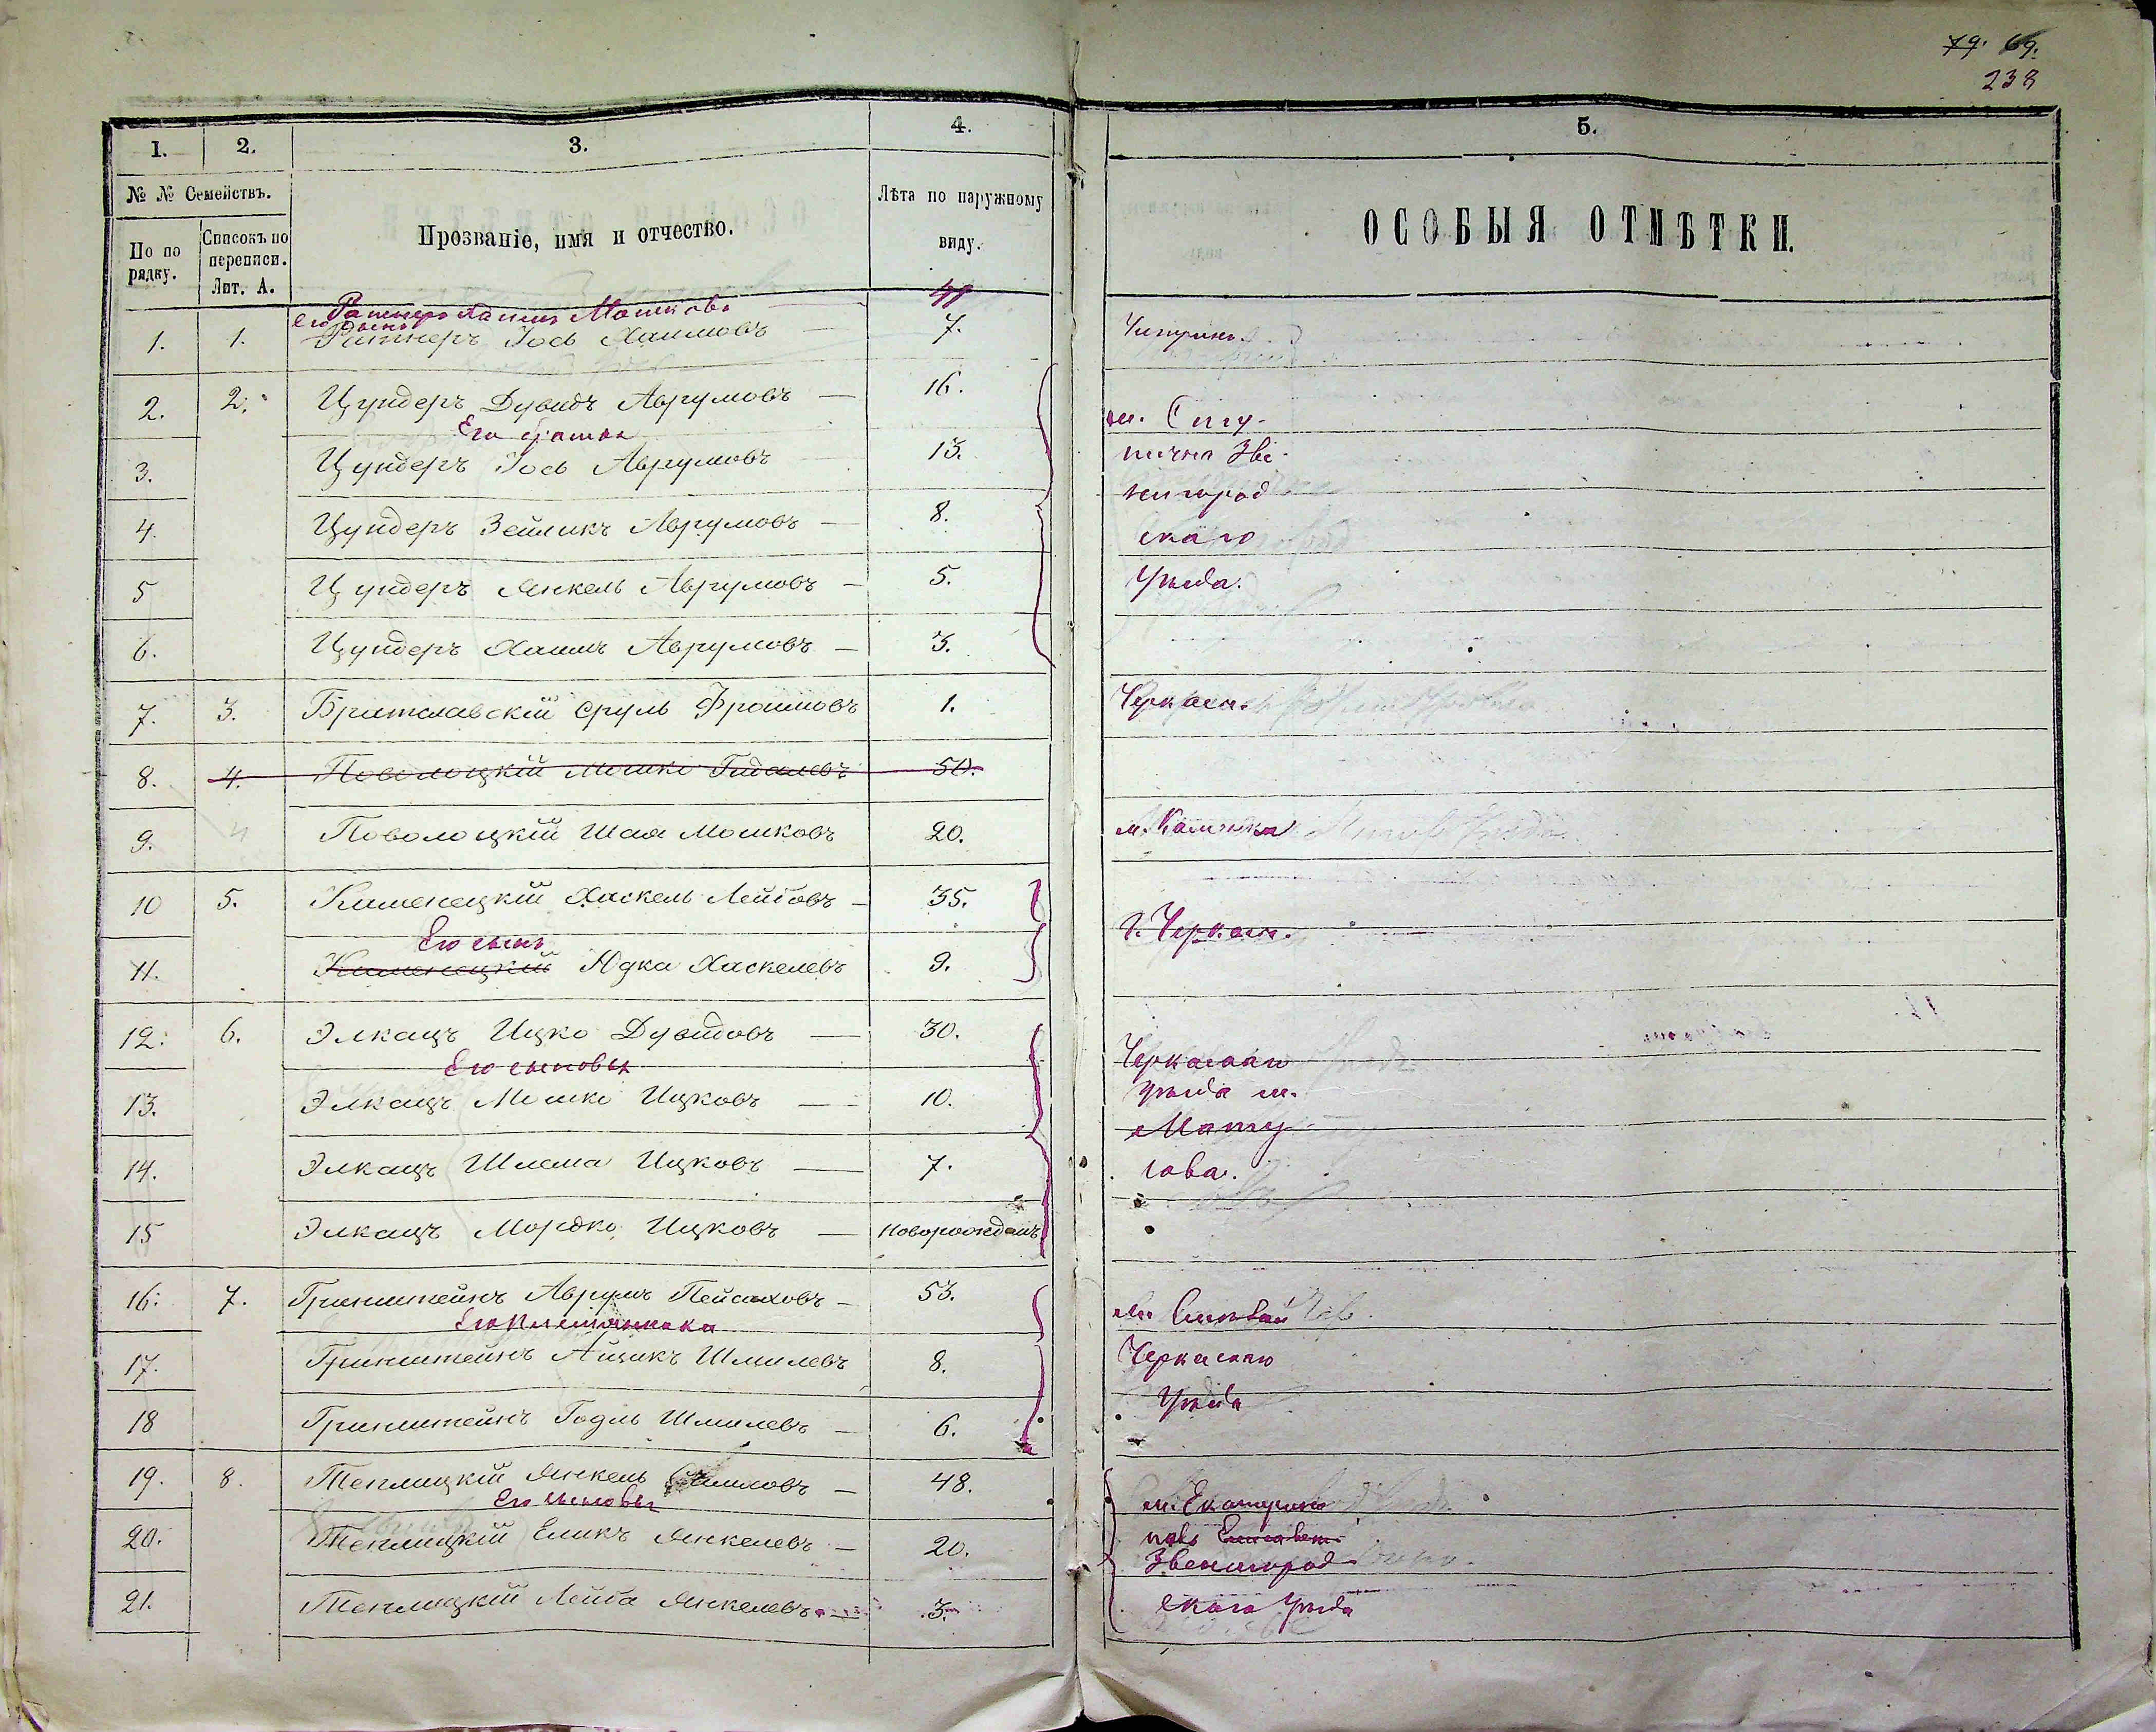 79. 69.
238
1. 2. 3. 4. 5.
№ № Семействъ.
По по рядку.
Списокъ по переписи. Лит. А.
Прозваніе, имя и отчество.
Лѣта по наружному виду.
ОСОБЫЯ ОТМѢТКИ.
Ратнеръ Хаимъ Мошковъ
его сынъ
1. 1. Ратнеръ Іось Хаимовъ — 7. Чигринъ.
2. 2. Цундеръ Дувидъ Аврумовъ — 16. м.
Его братья
3. Цундеръ Іось Аврумовъ 13. Зве-
4. Цундеръ Зейликъ Аврумовъ — 8. нигород
скаго
5 Цундеръ Янкель Аврумовъ — 5. Уѣзда.
6. Цундеръ Хаимъ Аврумовъ — 3.
7. 3. Братславскій Сруль Фроимовъ 1. Черкасы.
8. 4. Поволоцкій Мошко Гидалевъ 50.
9. 4 Поволоцкій Шая Мошковъ 20. м. Каменка
10 5. Каменецкій Хаскель Лейбовъ — 35. г. Черкасы.
Его сынъ
11. Каменецкій Юдка Хаскелевъ 9.
12. 6. Элкацъ Ицко Дувидовъ — 30. Черкаскаго
Его сыновья
13. Элкацъ Мошко Ицковъ — 10. Уѣзда м.
Мату
14. Элкацъ Шлема Ицковъ — 7. сова.
15 Элкацъ Мордко Ицковъ — новорожденъ
16. 7. Гринштейнъ Аврумъ Пейсаховъ — 53. м.
Его племянники
17. Гринштейнъ Айзикъ Шмилевъ 8. Черкаскаго
18 Гринштейнъ Годль Шмилевъ — 6. Уѣзда
19. 8. Теплицкій Янкель — 48. м. Екатерино
Его сыновья
20. Теплицкій Еликъ Янкелевъ — 20. поль
Звенигород
21. Теплицкій Лейба Янкелевъ — 3. скаго Уѣзда